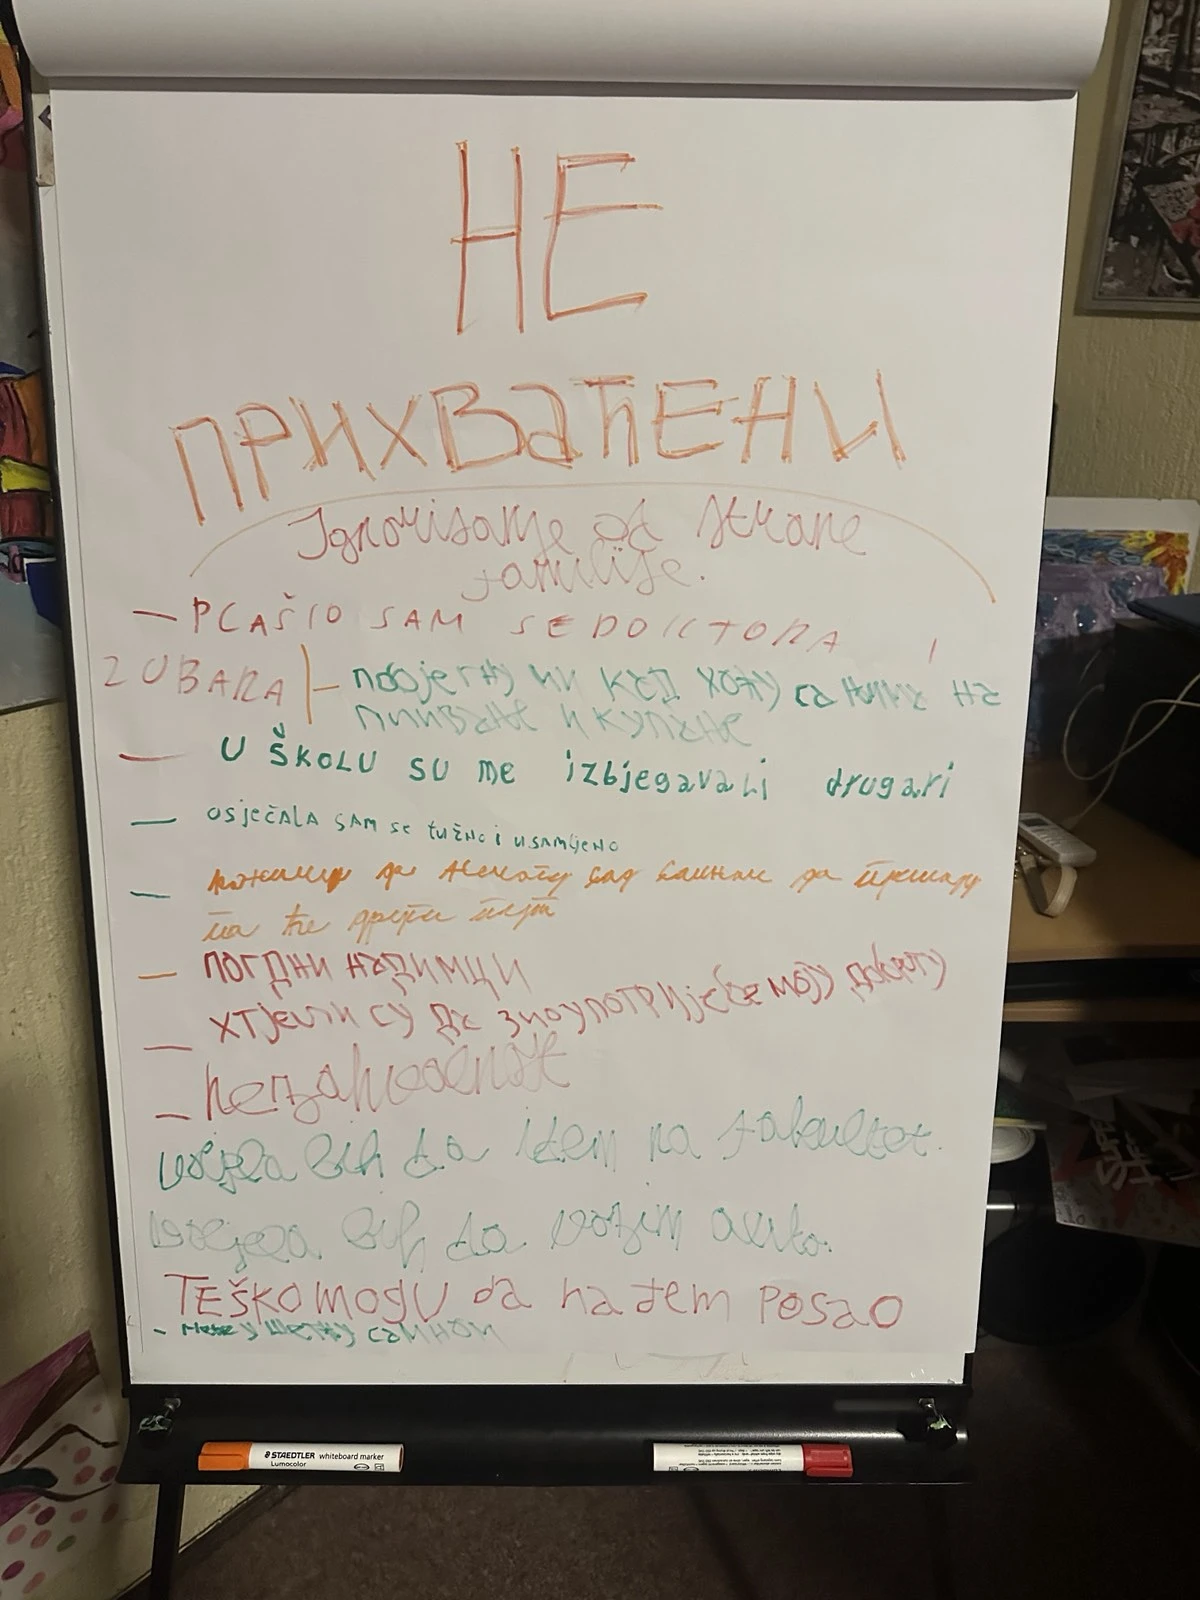 НЕ
ПРИХВАЋЕНИ
Ignorisanje od strane
familije.
— PLAŠIO SAM SE DOKTORA I
ZUBARA
— побјегну ми кад хоћу са њима на
пливање и купање
— U ŠKOLU SU ME izbjegavali drugari
— osječALA SAM se tužno i usamljeno
— да да
па ће
— погдни надимци
— хтјели су да злоупотријебе моју доброту
— nezahvalnost
voljela bih da idem na fakultet.
voljela bih da vozim auto.
TEŠKO mogu da nađem POSAO
STAEDTLER whiteboard marker
Lumocolor